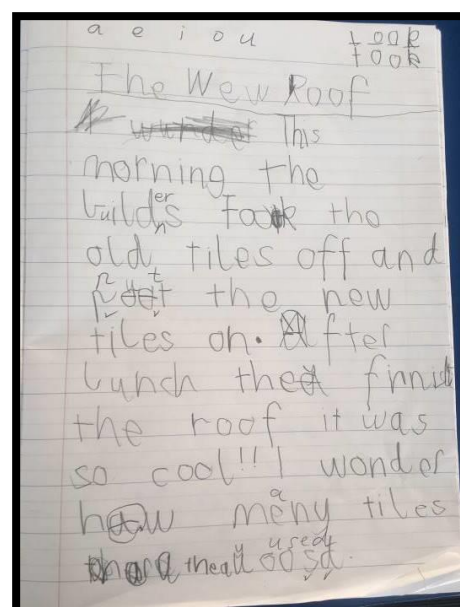 a e i o u
took
took
The Wew Roof
This
morning the
builders took the
old tiles off and
put the new
tiles on. After
lunch thea finnish
the roof it was
so cool!! I wonder
how many tiles
thea used.